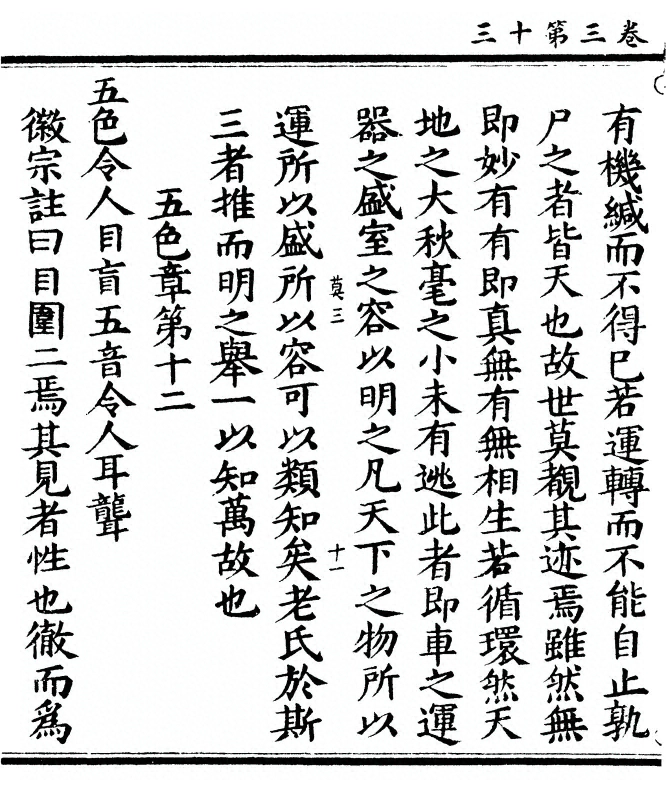 三十第三卷
有機緘而不得巳若運轉而不能自止孰
尸之者皆天也故世莫覩其迹焉雖然無
即妙有有即真無有無相生若循環然天
地之大秋毫之小未有逃此者即車之運
器之盛室之容以明之凡天下之物所以
莫三
十一
運所以盛所以容可以類知矣老氏於斯
三者推而明之舉一以知萬故也
五色章第十二
五色令人目盲五音令人耳聾
徽宗註曰目圍二焉其見者性也徹而為